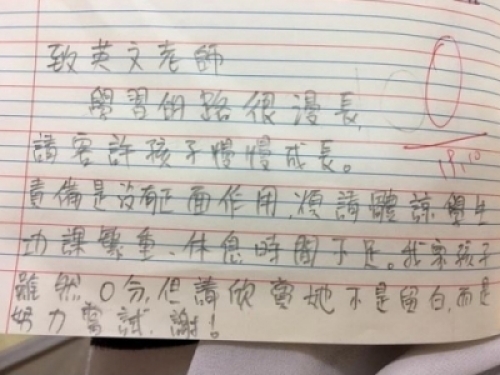 致英文老師
學習的路很漫長,
請容許孩子慢慢成長。
責備是沒有正面作用,煩請體諒學生
功課繁重,休息時間不足。我家孩子
雖然0分,但請欣賞她不是留白,而是
努力嘗試,謝!
0